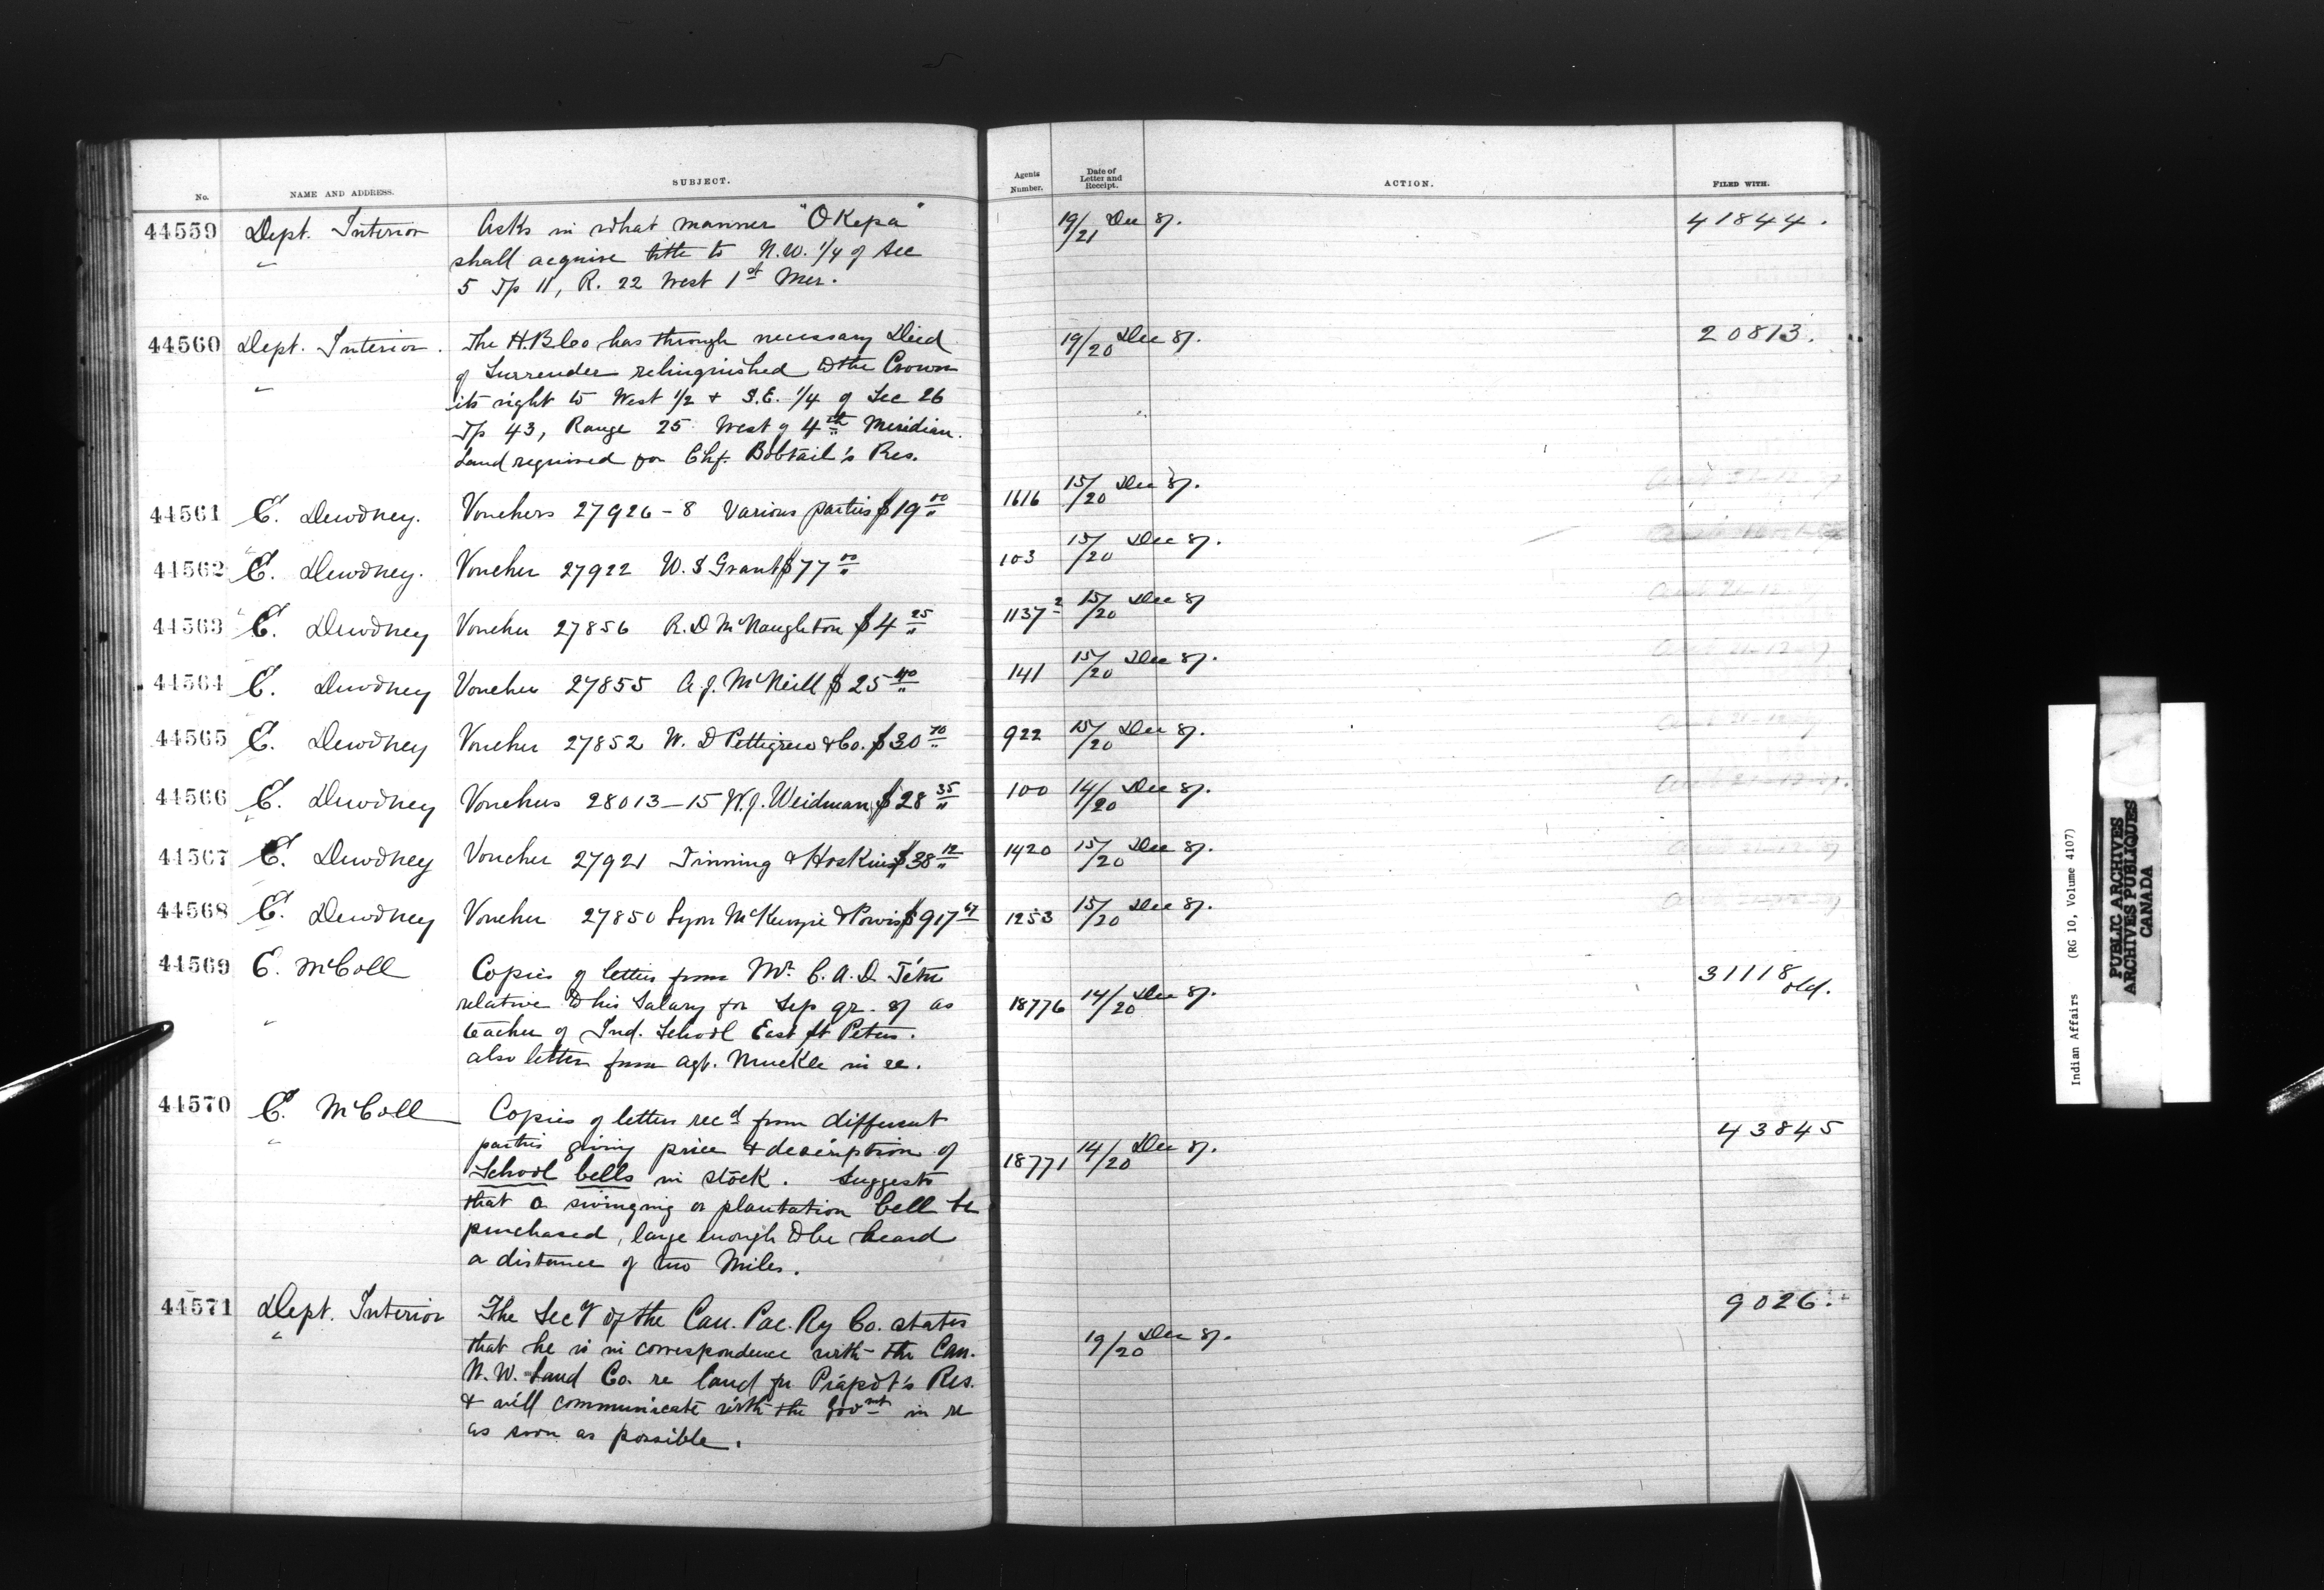 No.
NAME AND ADDRESS.
SUBJECT.
Agents Number.
Date of Letter and Receipt.
ACTION.
FILED WITH.
44559 Dept. Interior Asks in what manner "OKepa" 19/21 Dec 87. 41844.
shall acquire title to N.W. 1/4 of Sec
5 Tp 11, R. 22 West 1st Mer.
44560 Dept. Interior. The H.B.Co has through necessary Deed 19/20 Dec 87. 20813.
of Surrender relinquished to the Crown
its right to West 1/2 + S.E. 1/4 of Sec 26
Tp 43, Range 25 West of 4th Meridian.
Land required for Chf. Bobtail's Res.
44561 E. Dewdney. Vouchers 27926-8 Various parties $19 00 1616 15/20 Dec 87.
44562 E. Dewdney. Voucher 27922 W. S Grant $77 00 103 15/20 Dec 87.
44563 E. Dewdney Voucher 27856 R. D McNaughton $4 25 1137 2 15/20 Dec 87
44564 E. Dewdney Voucher 27855 A. J. McNeill $25 40 141 15/20 Dec 87.
44565 E. Dewdney Voucher 27852 W. D Pettigrew & Co. $30 70 922 15/20 Dec 87.
44566 E. Dewdney Vouchers 28013-15 W. J. Weidman $28 35 100 14/20 Dec 87.
44567 E. Dewdney Voucher 27921 Tinning & Hoskins $38 12 1420 15/20 Dec 87.
44568 E. Dewdney Voucher 27850 Lyon McKenzie & Powis $917 67 1253 15/20 Dec 87.
44569 E. McColl Copies of letters from Mr. C. A. D. 18776 14/20 Dec 87. 31118 old.
relative to his Salary for Sep qr. 87 as
teacher of Ind. School East St Peters.
also letter from Agt. Muckle in re.
44570 E. McColl Copies of letters recd from different 18771 14/20 Dec 87. 43845
parties giving price & description of
School bells in stock. Suggests
that a swinging or plantation bell be
purchased, large enough to be heard
a distance of two Miles.
44571 Dept. Interior The Secy of the Can. Pac. Ry Co. states 19/20 Dec 87. 9026.
that he is in correspondence with the Can.
N. W. Land Co. re land for Piapot's Res.
& will communicate with the Govmt in re
as soon as possible.
Indian Affairs (RG 10, Volume 4107)
PUBLIC ARCHIVES
ARCHIVES PUBLIQUES
CANADA